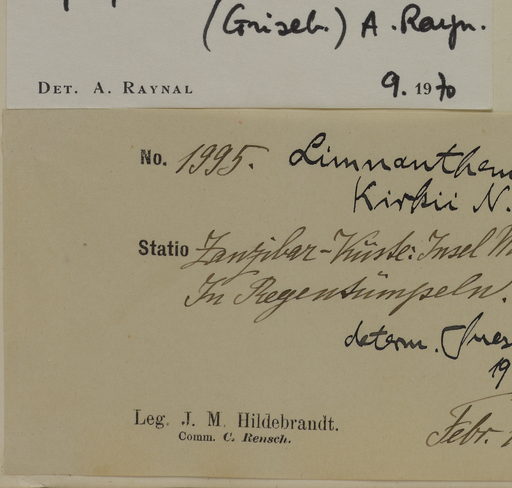 (Griseb.) A. Rayn.
DET. A. RAYNAL 9. 1970
No. 1995. Limnanthem
Kirkii N.
Statio Zanzibar-Küste: Insel M
In Regentümpeln.
determ.
19
Leg. J. M. Hildebrandt.
Comm. C. Rensch.
Febr.